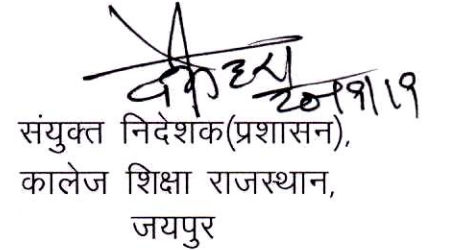 संयुक्त निदेशक(प्रशासन),
कालेज शिक्षा राजस्थान,
जयपुर